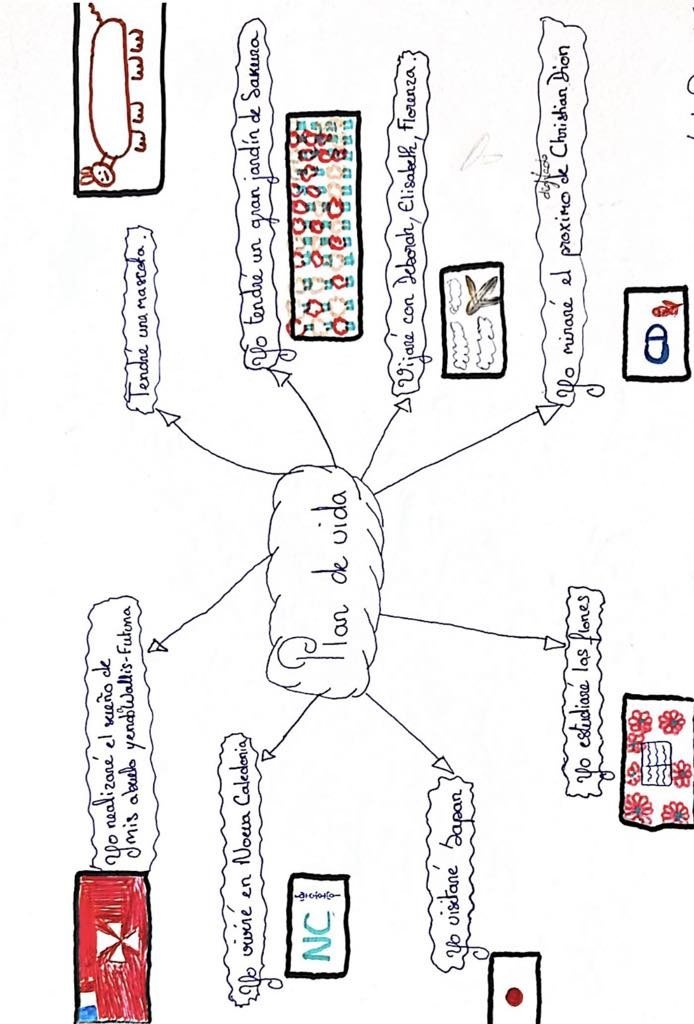 Plan de vida
Yo realizaré el sueño de
mis abuelo yendo Wallis-Futuna
Tendré una mascota.
Yo viviré en Noeva Caledonia
NC
Yo tendré un gran jardín de Sakura
Vijaré con Deborah, Elisabeth, Florenza.
Yo visitaré Japan
Yo estudiaré las flores
desfile
Yo miraré el proximo de Christian Dion
CD